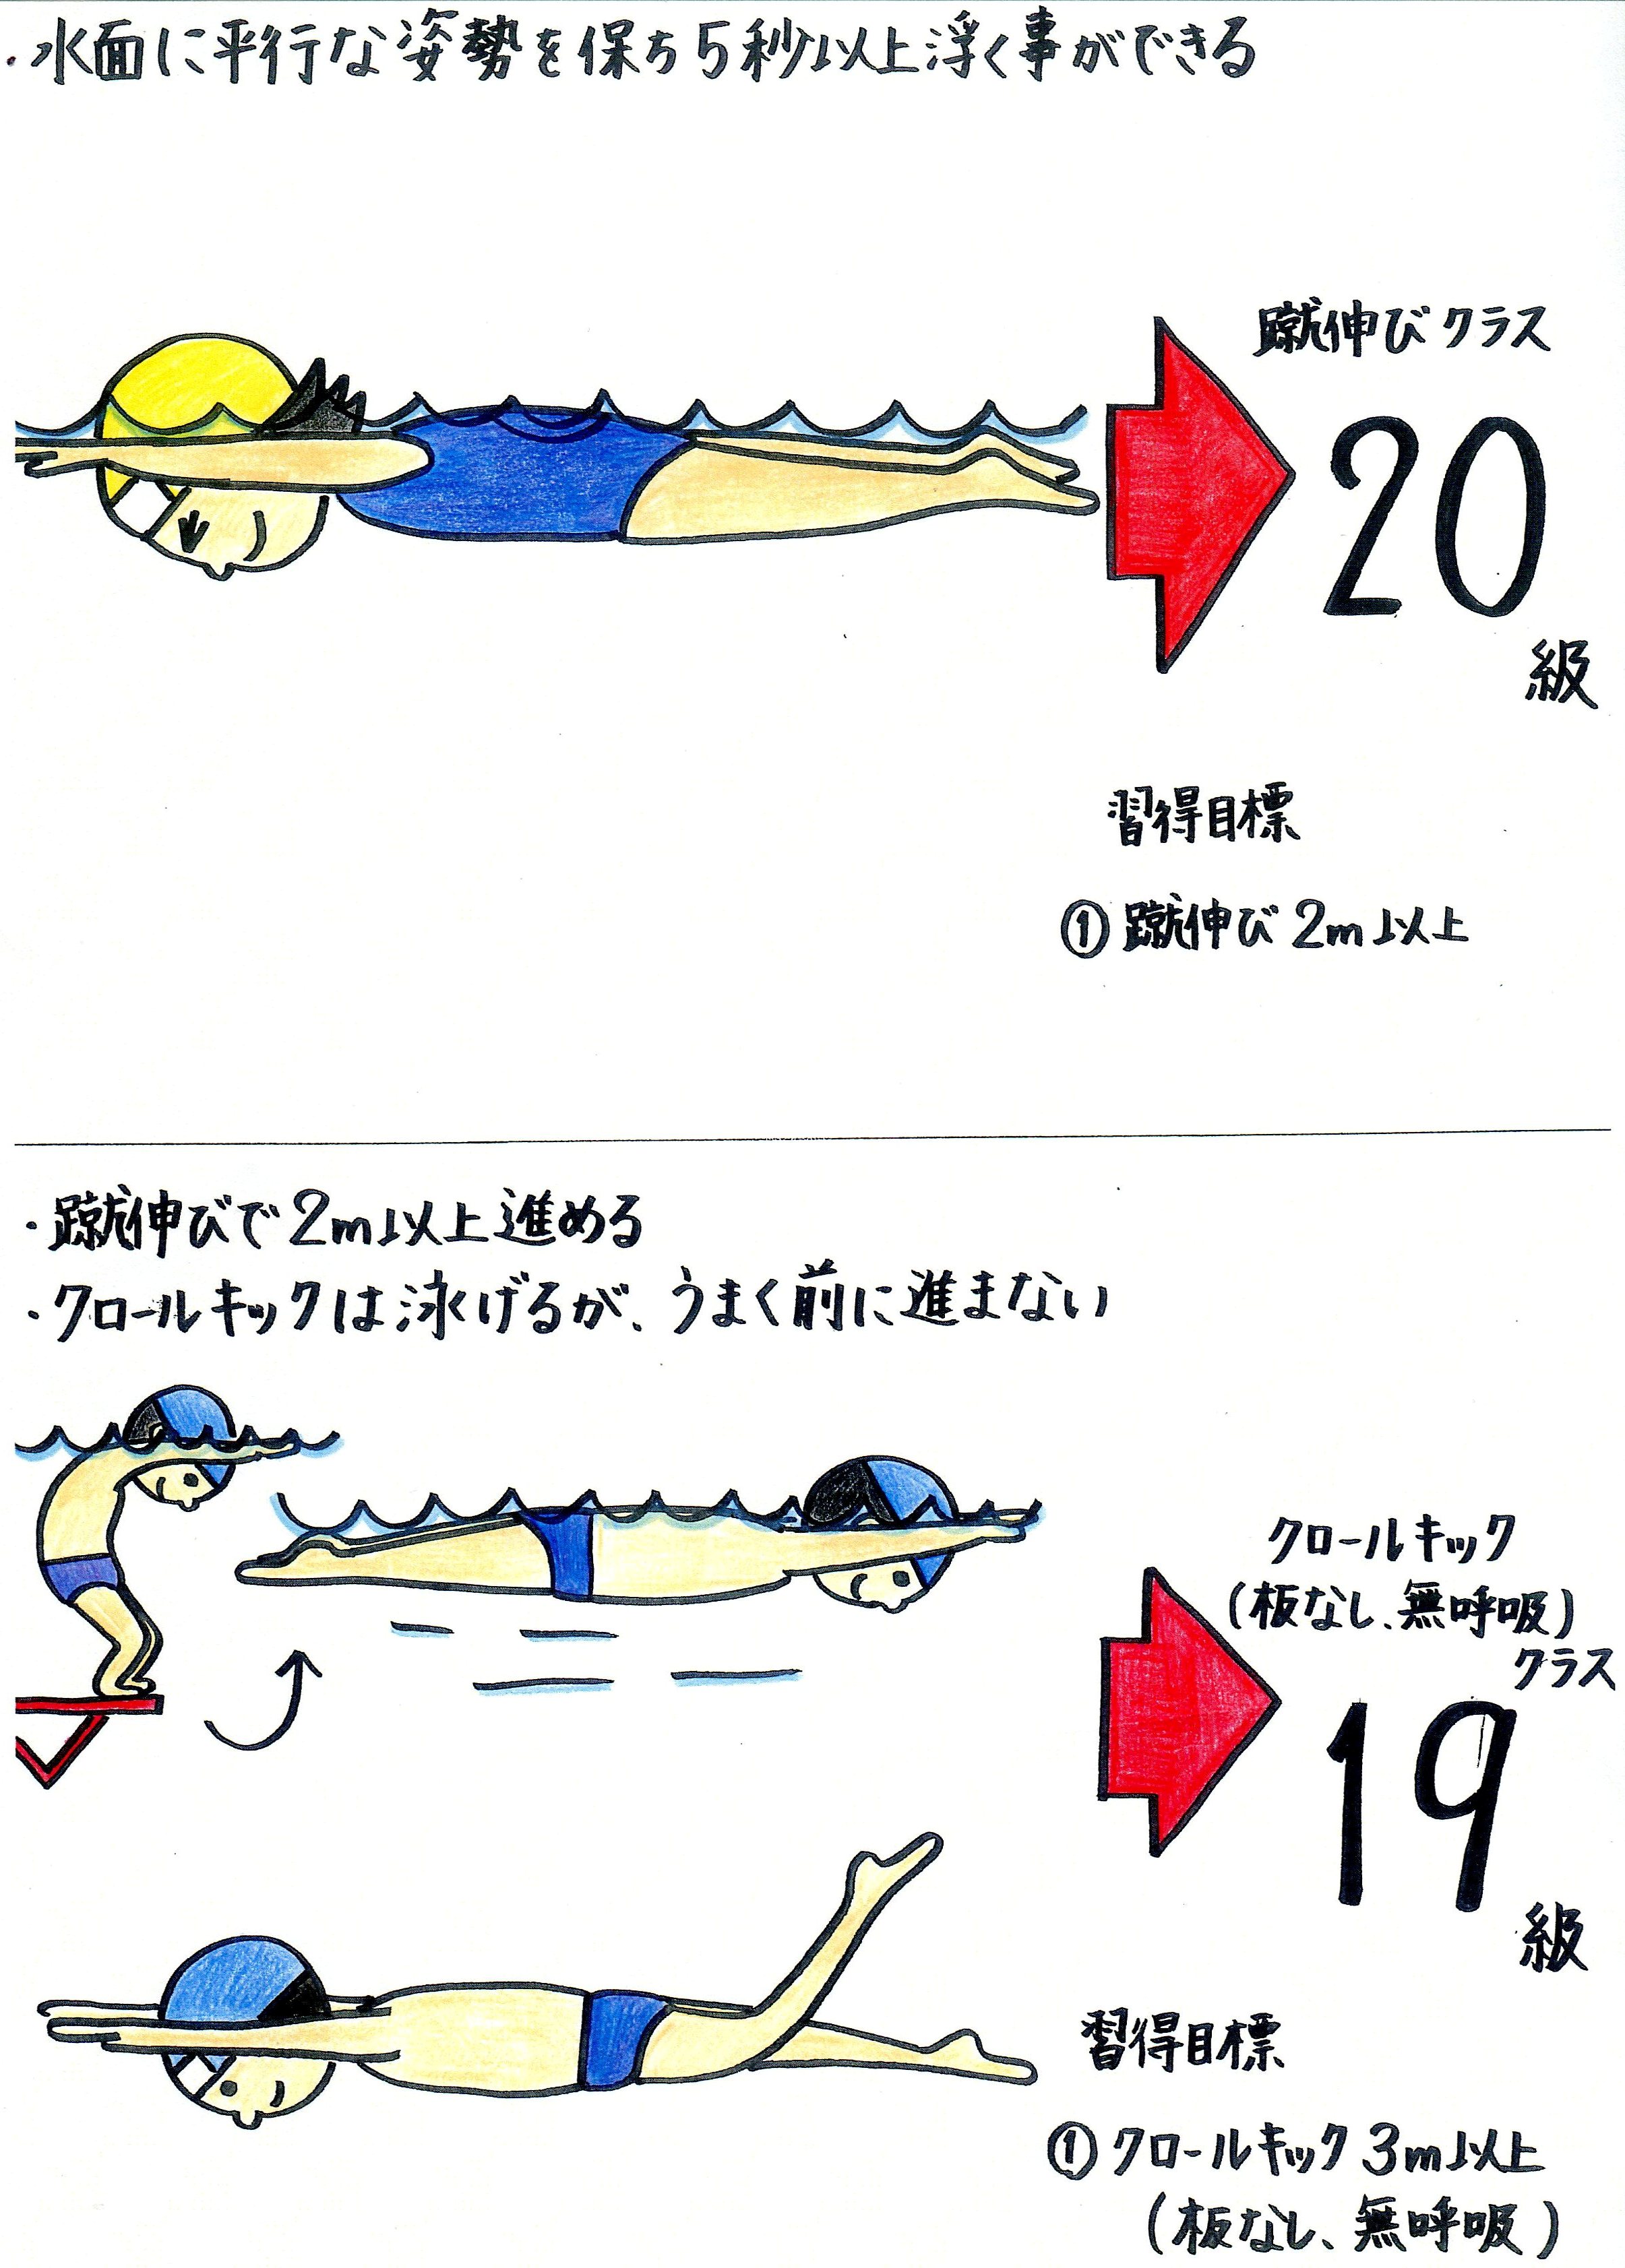 ・水面に平行な姿勢を保ち5秒以上浮く事ができる
蹴伸びクラス
20
級
習得目標
① 蹴伸び 2m以上
・蹴伸びで2m以上進める
・クロールキックは泳げるが、うまく前に進まない
クロールキック
(板なし、無呼吸)
クラス
19
級
習得目標
① クロールキック 3m以上
(板なし、無呼吸)